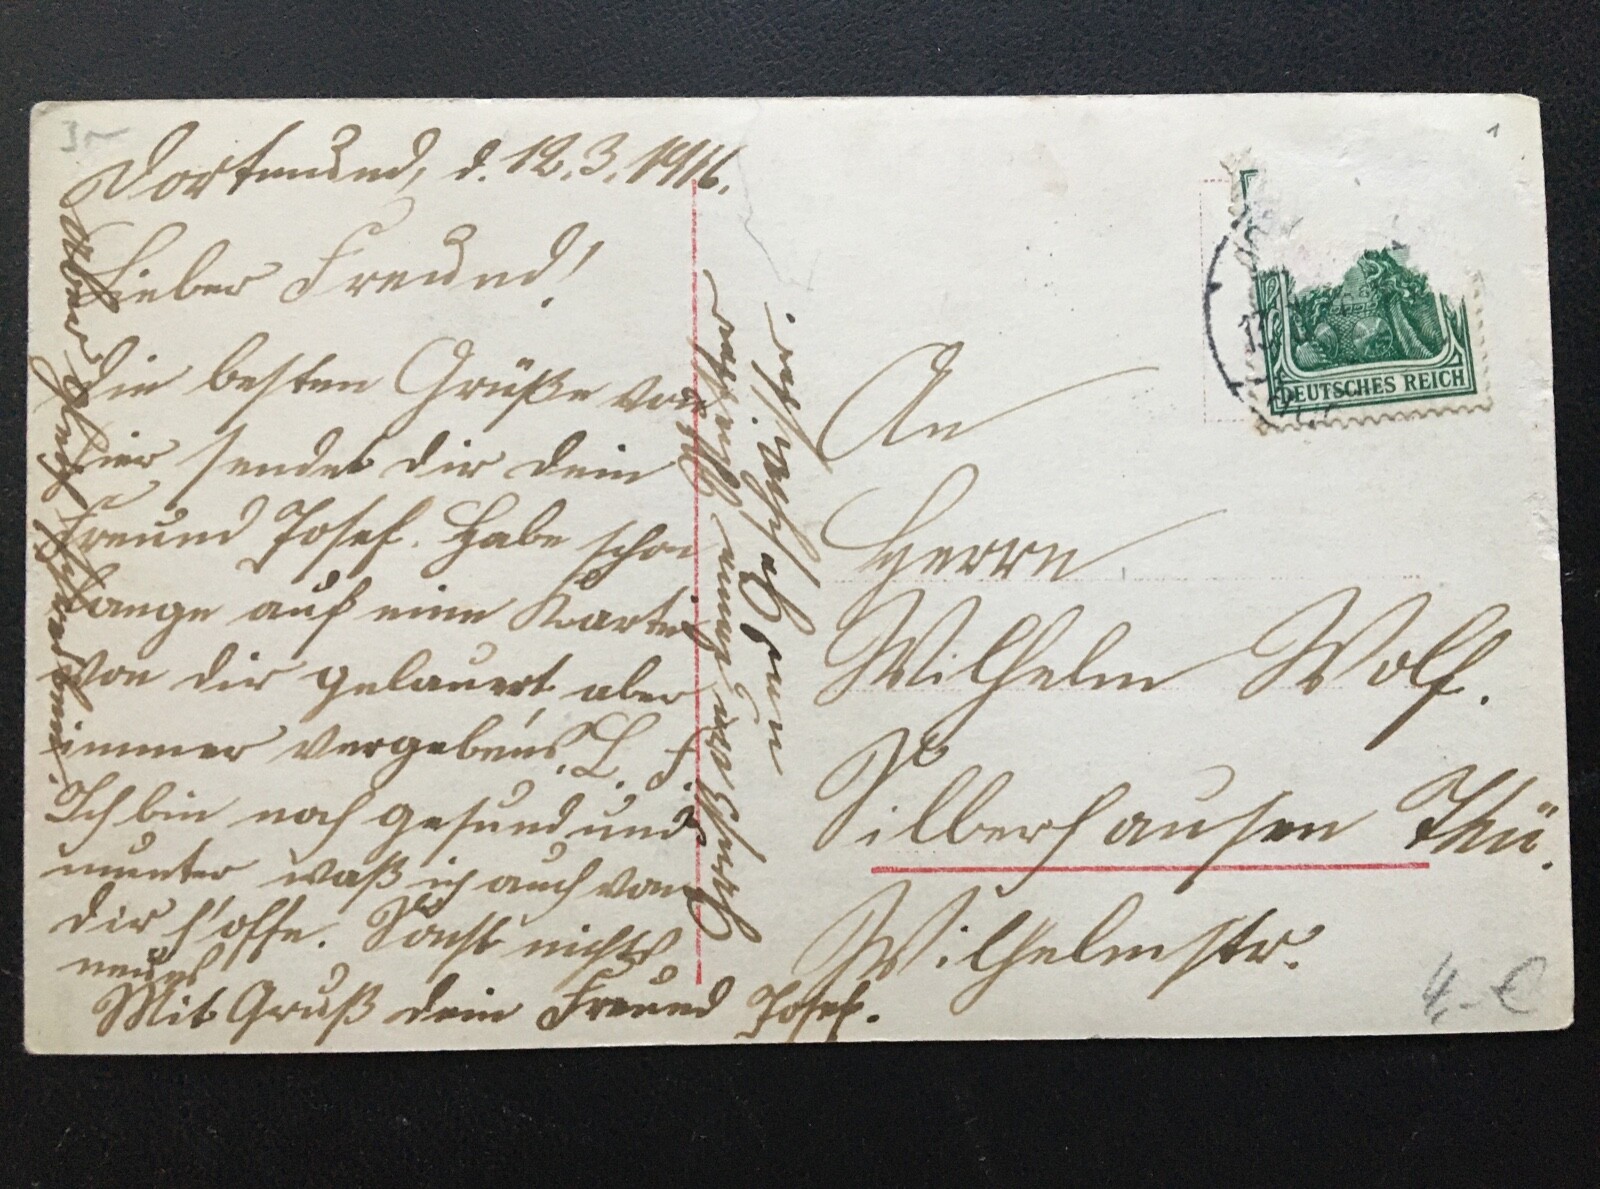 Dortmund, d. 12.3.1916.
Lieber Freund!
Die besten Grüße von
hier sendet dir dein
Freund Josef. Habe schon
lange auf eine Karte
von dir gelauert, aber
immer vergebens. L. F.
Ich bin noch gesund und
munter waß ich auch von
dir hoffe. Sonst nichts
neues
Mit Gruß dein Freund Josef.
Aber gleich
An
Herrn
Wilhelm Wolf.
Silberhausen Thü.
Wilhelmstr.
DEUTSCHES REICH
13
4,- €
1